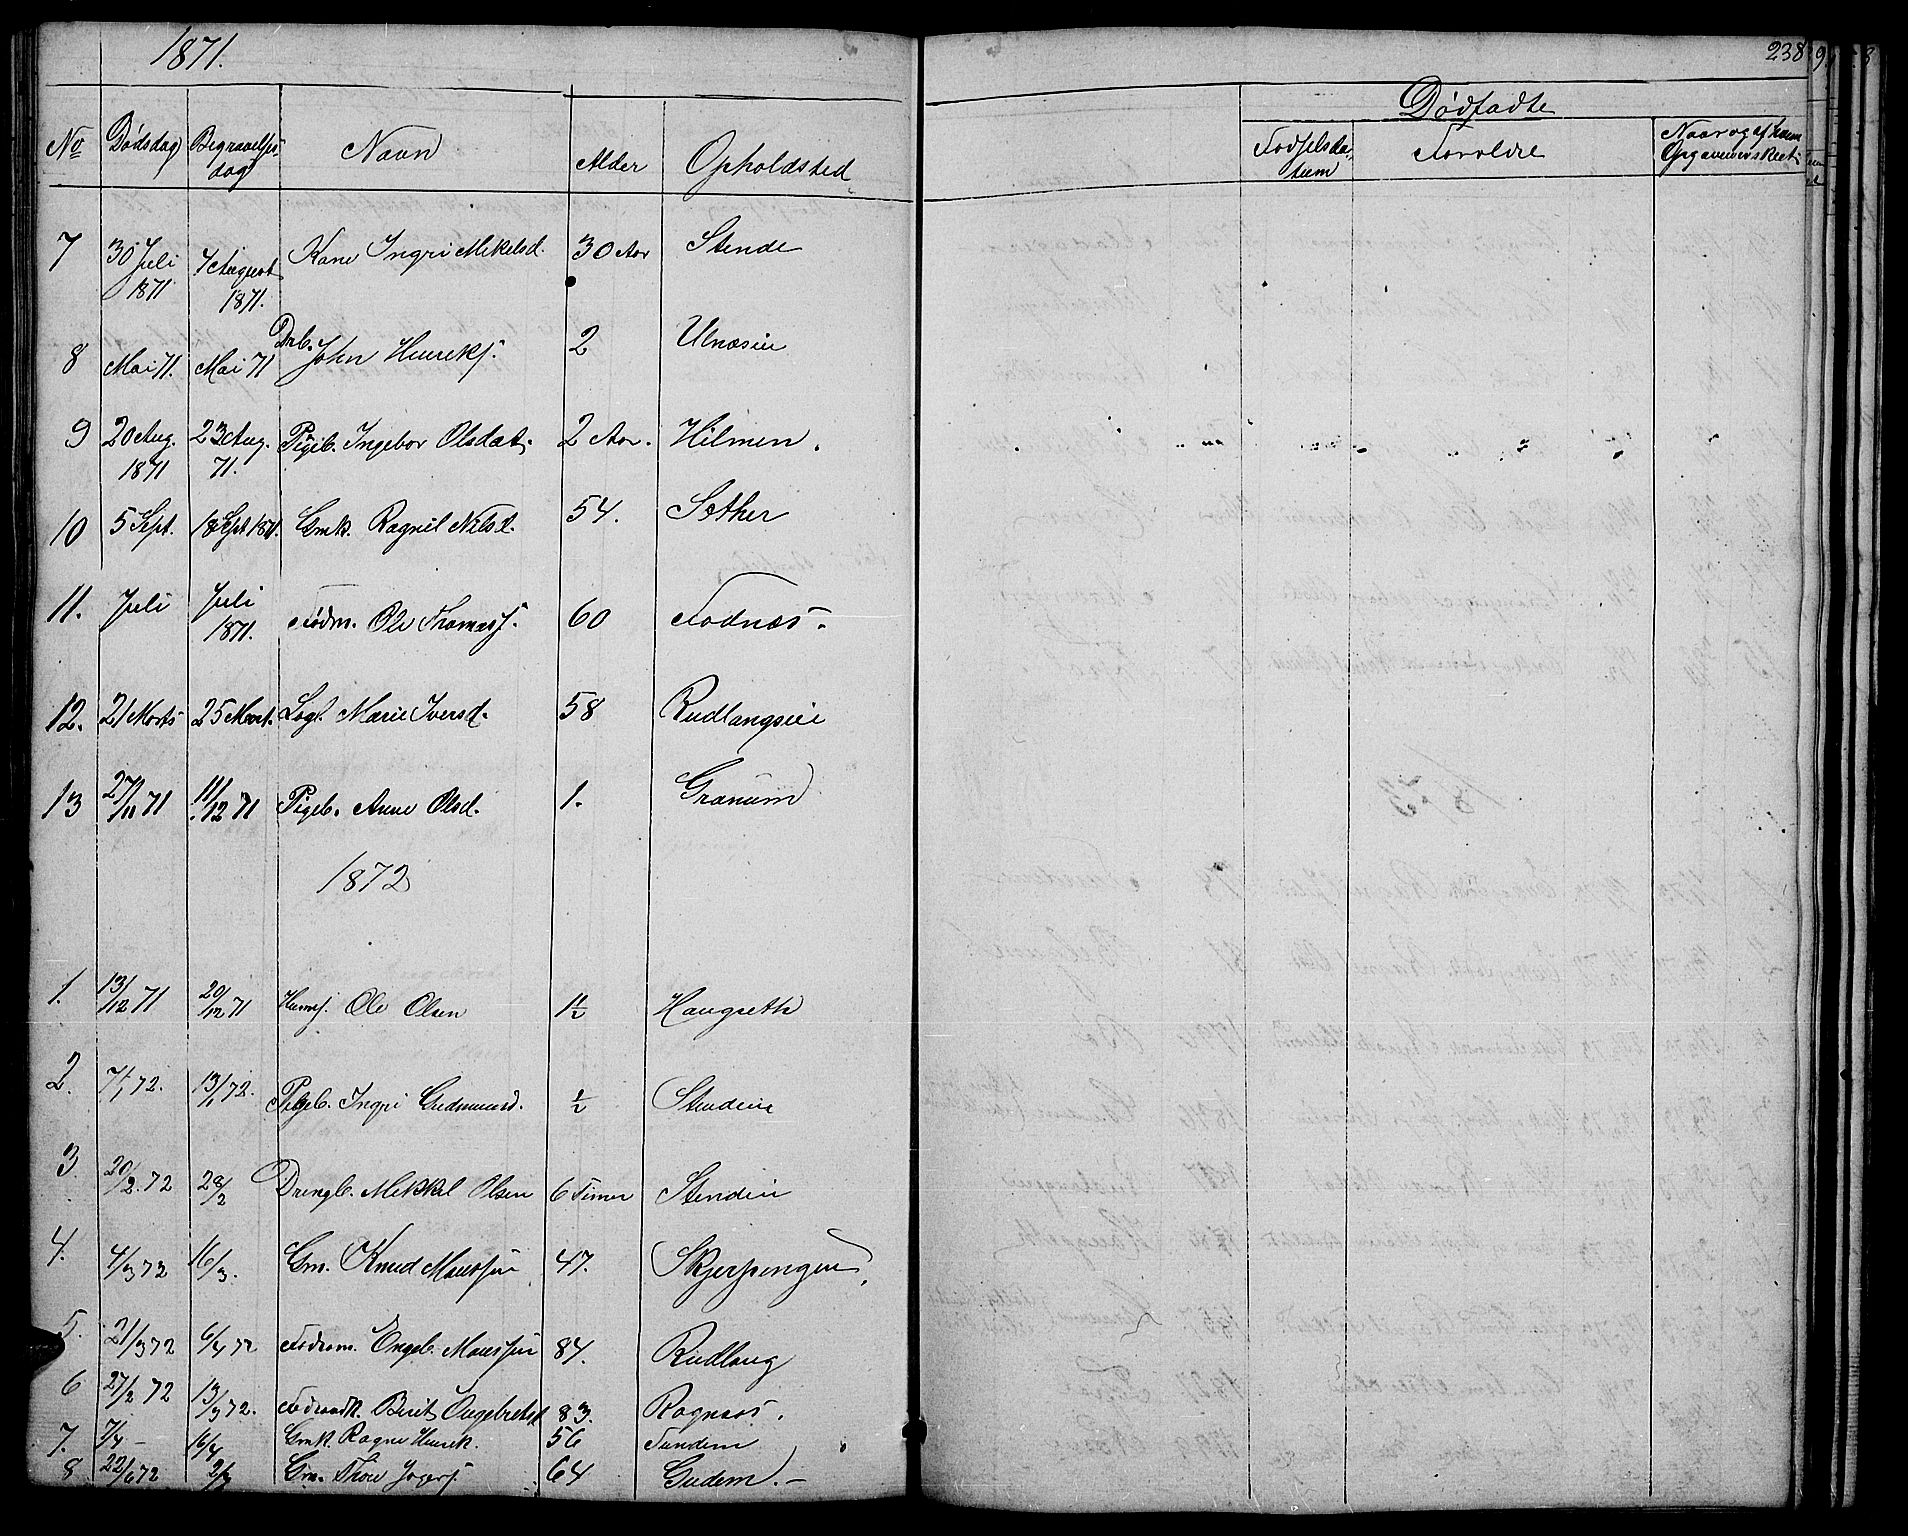 1871.
No Dødsdag Begravelses- dag Navn Alder Opholdsted
7 30 Juli 1871 4 August 1871. Kone Ingri Mikelsd. 30 Aar Stende
8 Mai 71. Mai 71 Drb. John Henriks. 2 Ulnæsiei
9 20 Aug. 1871 23 Aug. 71. Pigeb. Ingebor Olsdat. 2 Aar. Hilmen.
10 5 Sept. 18 Sept 1871. Gmk. Ragnil Nilsd. 54. Sæther
11. Juli Juli 1871. Födm. Ole Thomass. 60 Fodnæs.
12. 21 Marts 25 Mart. Lægl. Marie Iversd. 58 Rudlangseie
13 27/11 71 11/12 71 Pigeb. Anne Olsd. 1. Granum
1872
1. 13/12 71 20/12 71 Huusm. Ole Olsen 1½ Haugseth
2. 7/1 72. 13/1 72. Pigeb. Ingri Gudmunsd. ½ Stendeie
3 20/2 72 28/2 Drengb. Mikkel Olsen 6 Timer Stendeie
4. 4/3 72 16/3. Gm. Knud Monssen 47. Skjerpingen
5. 21/3 72 6/4 72 Födraam. Engeb. Monssen 84. Rudlang
6 27/2 72 13/3 72. Födraadk. Berit Engebretsd 83. Ragnæs.
7. 7/4 - 16/4 Gmk. Ragne Henrik. 56 Sundem
8 22/6 72 2/7 Gm. Thore 64 Gudem. -
238
Dødfødte
Fødselsda- tum Forældre Naar og af hvem Opgaven er skeet